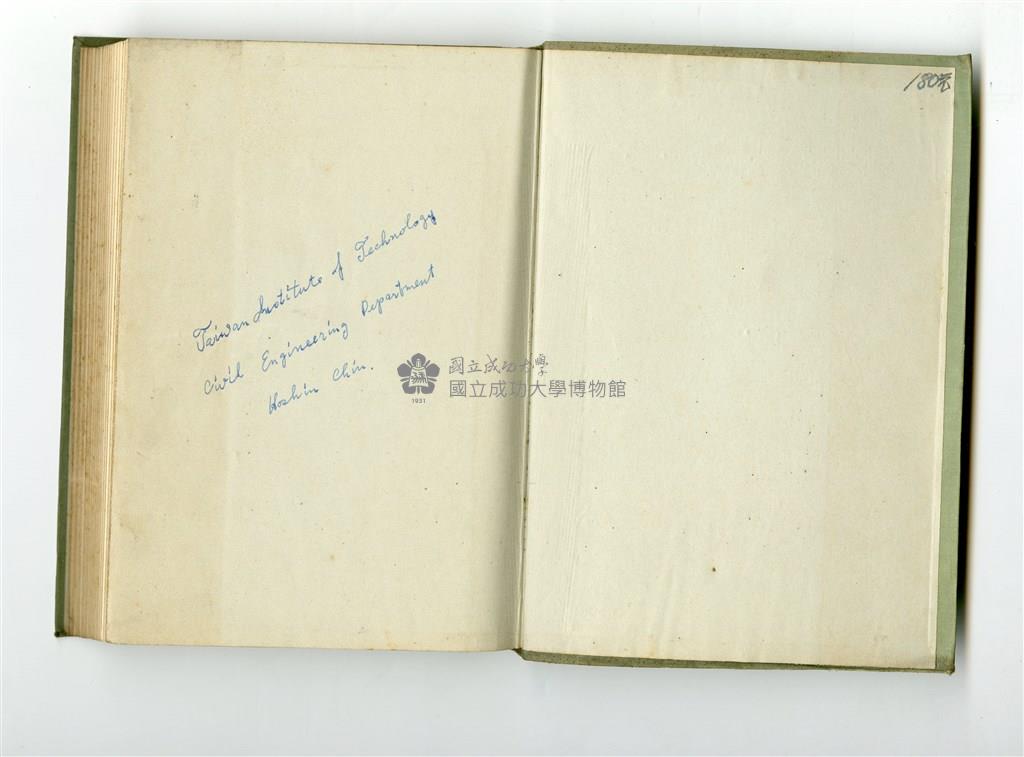 Taiwan Institute of Technology
Civil Engineering Department
Hoshin Chin.
180元
國立成功大學
國立成功大學博物館
1931